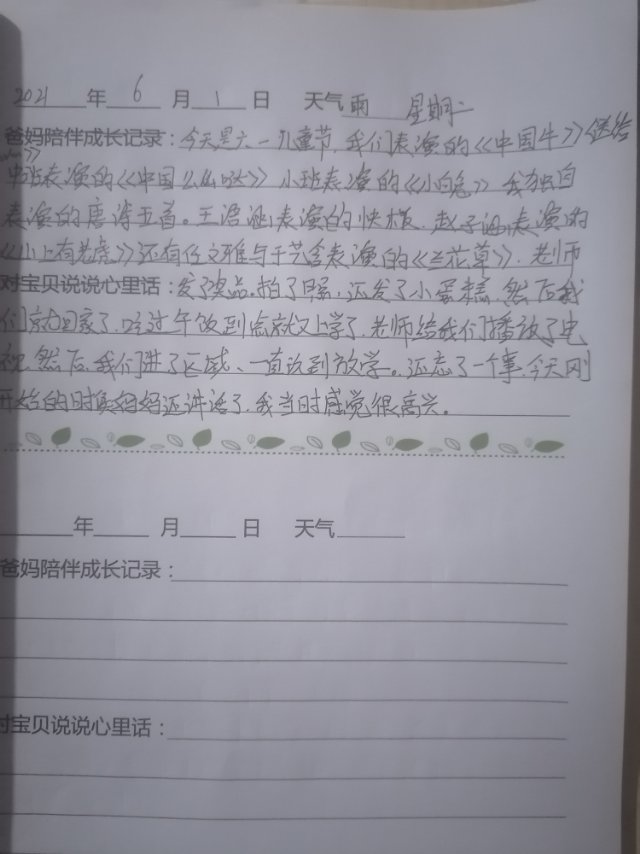 2021年6月1日 天气雨 星期二
爸妈陪伴成长记录：今天是六一儿童节，我们表演的《中国牛》
中班表演的《中国么么哒》小班表演的《小白兔》我独自
表演的唐诗五首。王 表演的快板，赵子涵表演的
《 》还有任文雅与 表演的《兰花草》，老师
对宝贝说说心里话：发了奖品，拍了照，还发了小蛋糕，然后我
们就回家了，吃过午饭到点就又上学了，老师给我们播放了电
视，然后，我们进了区域、一直玩到放学。还忘了一个事，今天刚
开始的时候妈妈还讲话了，我当时感觉很高兴。
年 月 日 天气
爸妈陪伴成长记录：
对宝贝说说心里话：